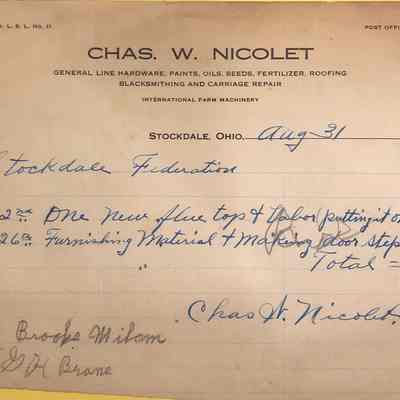 L. S. L. No. 11
POST OFFI
CHAS. W. NICOLET
GENERAL LINE HARDWARE, PAINTS, OILS, SEEDS, FERTILIZER, ROOFING
BLACKSMITHING AND CARRIAGE REPAIR
INTERNATIONAL FARM MACHINERY
STOCKDALE, OHIO, Aug 31
Stockdale Federation
One New flue top & Labor putting it o
26 Furnishing Material & Making door step
" Total =
Chas W. Nicolet.
Brooks Milam
G H Brane